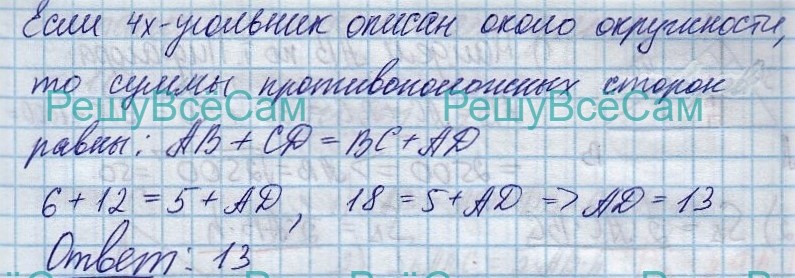 Если 4х-угольник описан около окружности,
то суммы противоположных сторон
РешуВсеСам РешуВсеСам
равны: AB + CD = BC + AD
6 + 12 = 5 + AD, 18 = 5 + AD => AD = 13
Ответ: 13